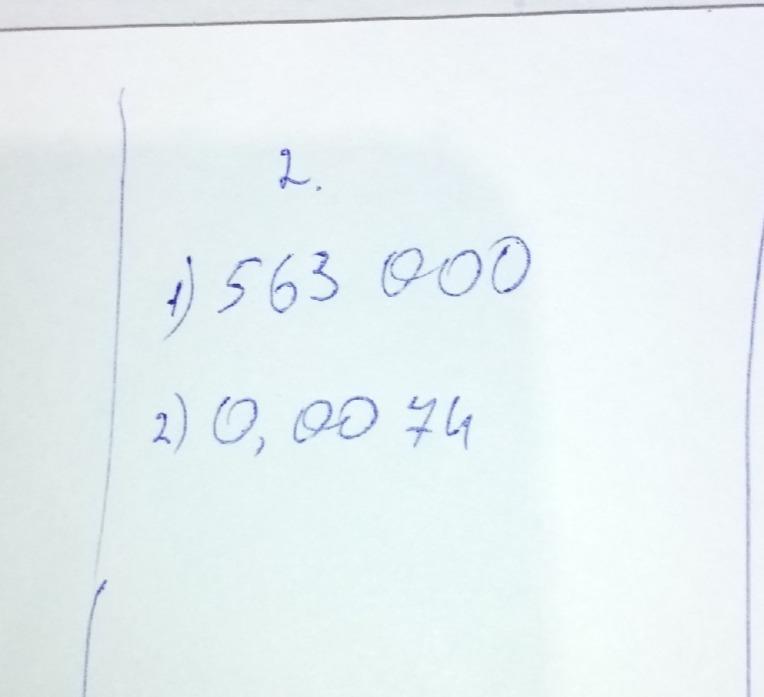 2.
1) 563 000
2) 0,0074